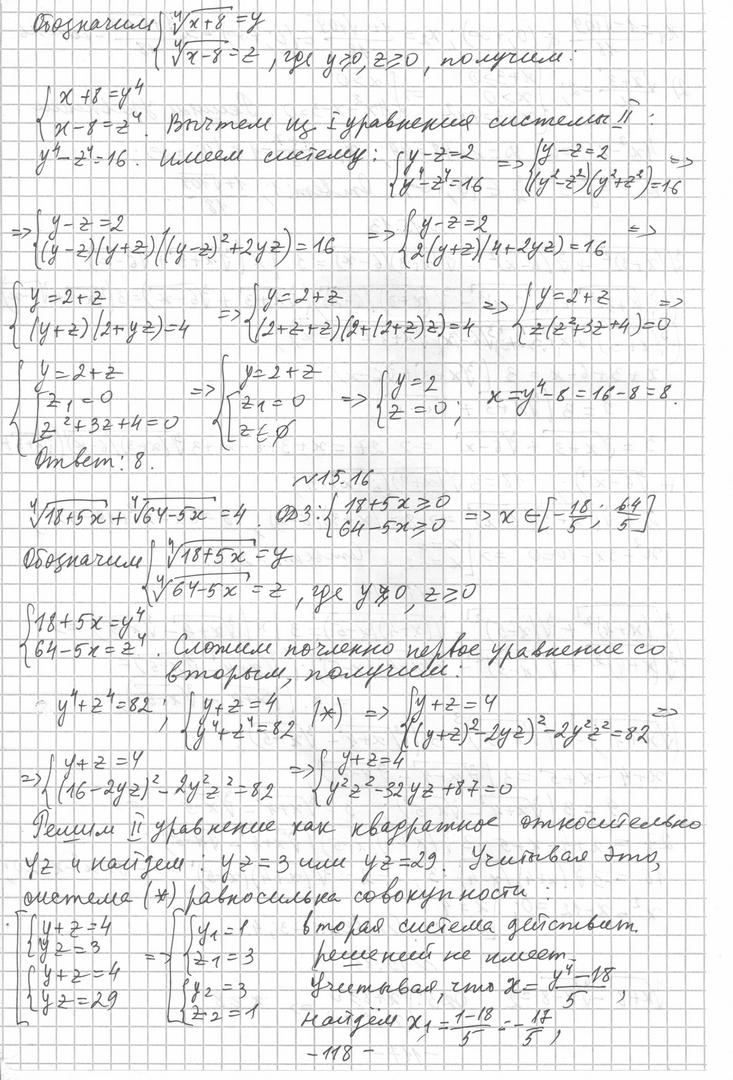 Обозначим { ⁴√(x+8) = y
⁴√(x-8) = z , где y≥0, z≥0, получим:
{ x+8=y⁴
x-8=z⁴. Вычтем из I уравнения системы II:
y⁴-z⁴=16. Имеем систему: { y-z=2 y⁴-z⁴=16 => { y-z=2 (y²-z²)(y²+z²)=16 =>
=> { y-z=2 (y-z)(y+z)((y-z)²+2yz)=16 => { y-z=2 2(y+z)(4+2yz)=16 =>
{ y=2+z (y+z)(2+yz)=4 => { y=2+z (2+z+z)(2+(2+z)z)=4 => { y=2+z z(z²+3z+4)=0 =>
{ y=2+z [ z₁=0 z²+3z+4=0 => { y=2+z [ z₁=0 z∈∅ => { y=2 z=0; x=y⁴-8=16-8=8.
Ответ: 8.
№15.16
⁴√(18+5x) + ⁴√(64-5x) = 4. ОДЗ: { 18+5x≥0 64-5x≥0 => x∈[-18/5; 64/5]
Обозначим { ⁴√(18+5x) = y
⁴√(64-5x) = z , где y≥0, z≥0
{ 18+5x=y⁴
64-5x=z⁴. Сложим почленно первое уравнение со
вторым, получим:
y⁴+z⁴=82; { y+z=4 y⁴+z⁴=82 (*) => { y+z=4 ((y+z)²-2yz)²-2y²z²=82 =>
=> { y+z=4 (16-2yz)²-2y²z²=82 => { y+z=4 y²z²-32yz+87=0
Решим II уравнение как квадратное относительно
yz и найдем: yz=3 или yz=29. Учитывая это,
система (*) равносильна совокупности:
[ { y+z=4 yz=3 { y+z=4 yz=29 => [ { y₁=1 z₁=3 { y₂=3 z₂=1
вторая система действит.
решений не имеет.
Учитывая, что x = (y⁴-18)/5,
найдём x₁ = (1-18)/5 = -17/5,
-118-